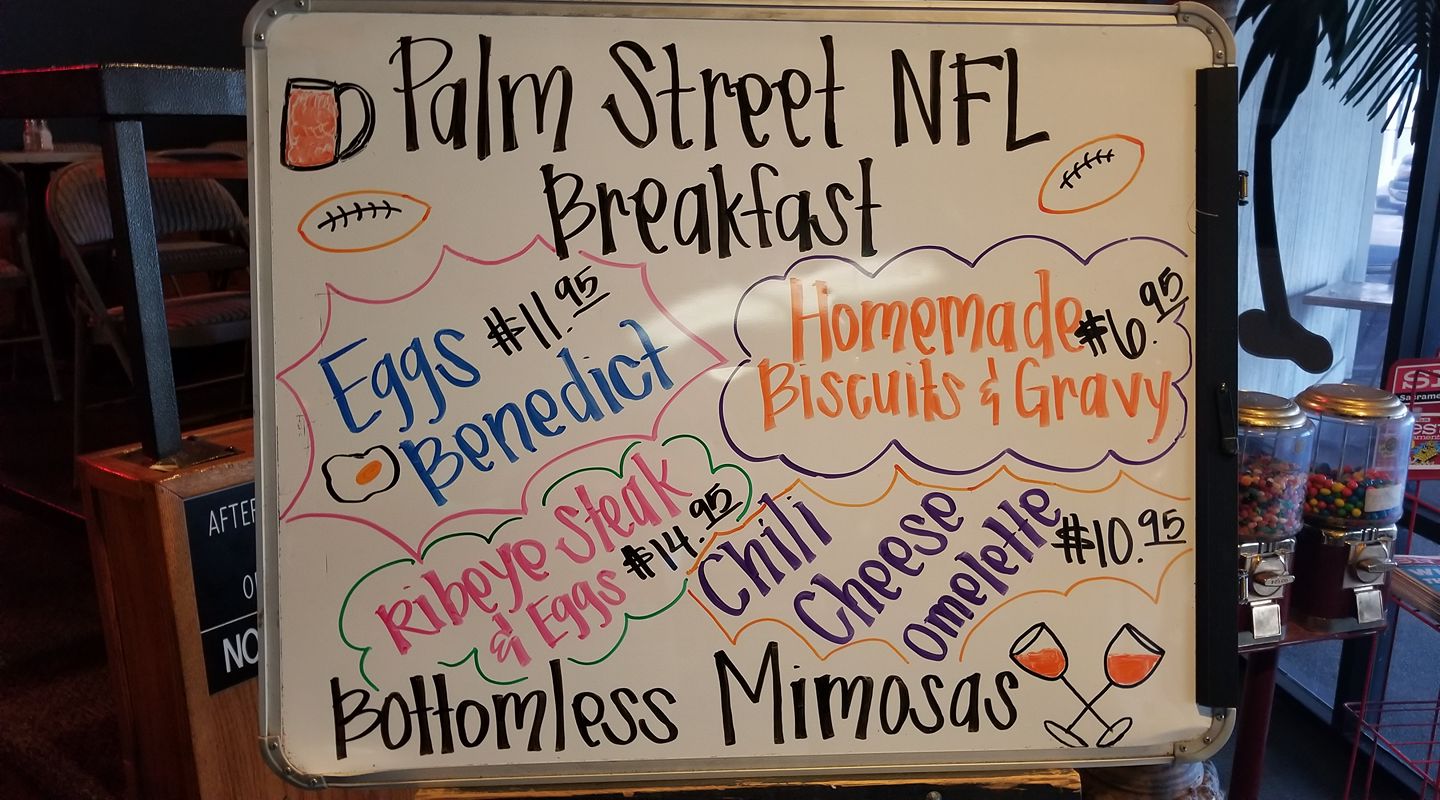 Palm Street NFL
Breakfast
Eggs $11.95
Benedict
Homemade $6.95
Biscuits & Gravy
Ribeye Steak
& Eggs $14.95
Chili
Cheese
Omelette $10.95
Bottomless Mimosas
AFTER
NO
Sacrame